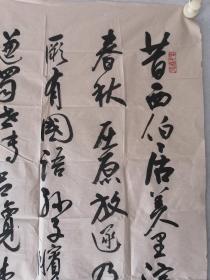 昔西伯居羑里演
春秋屈原放逐乃
厥有国语孙子膑
迁蜀世传吕览